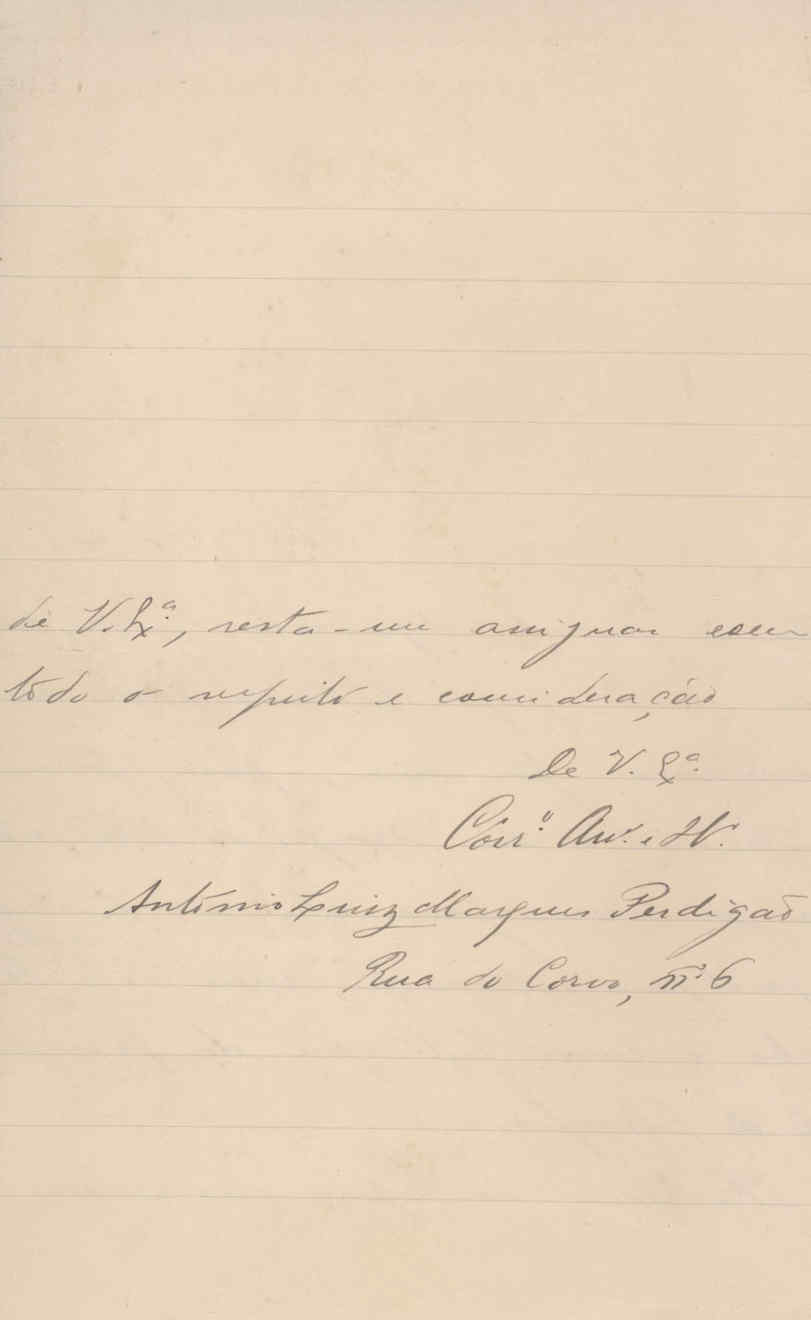 de V. Ex.ª, resta-me assignar com
todo o respeito e consideração
De V. Ex.ª
Am.º e
António Luiz Marques Perdigão
Rua do Corvo, nº 6